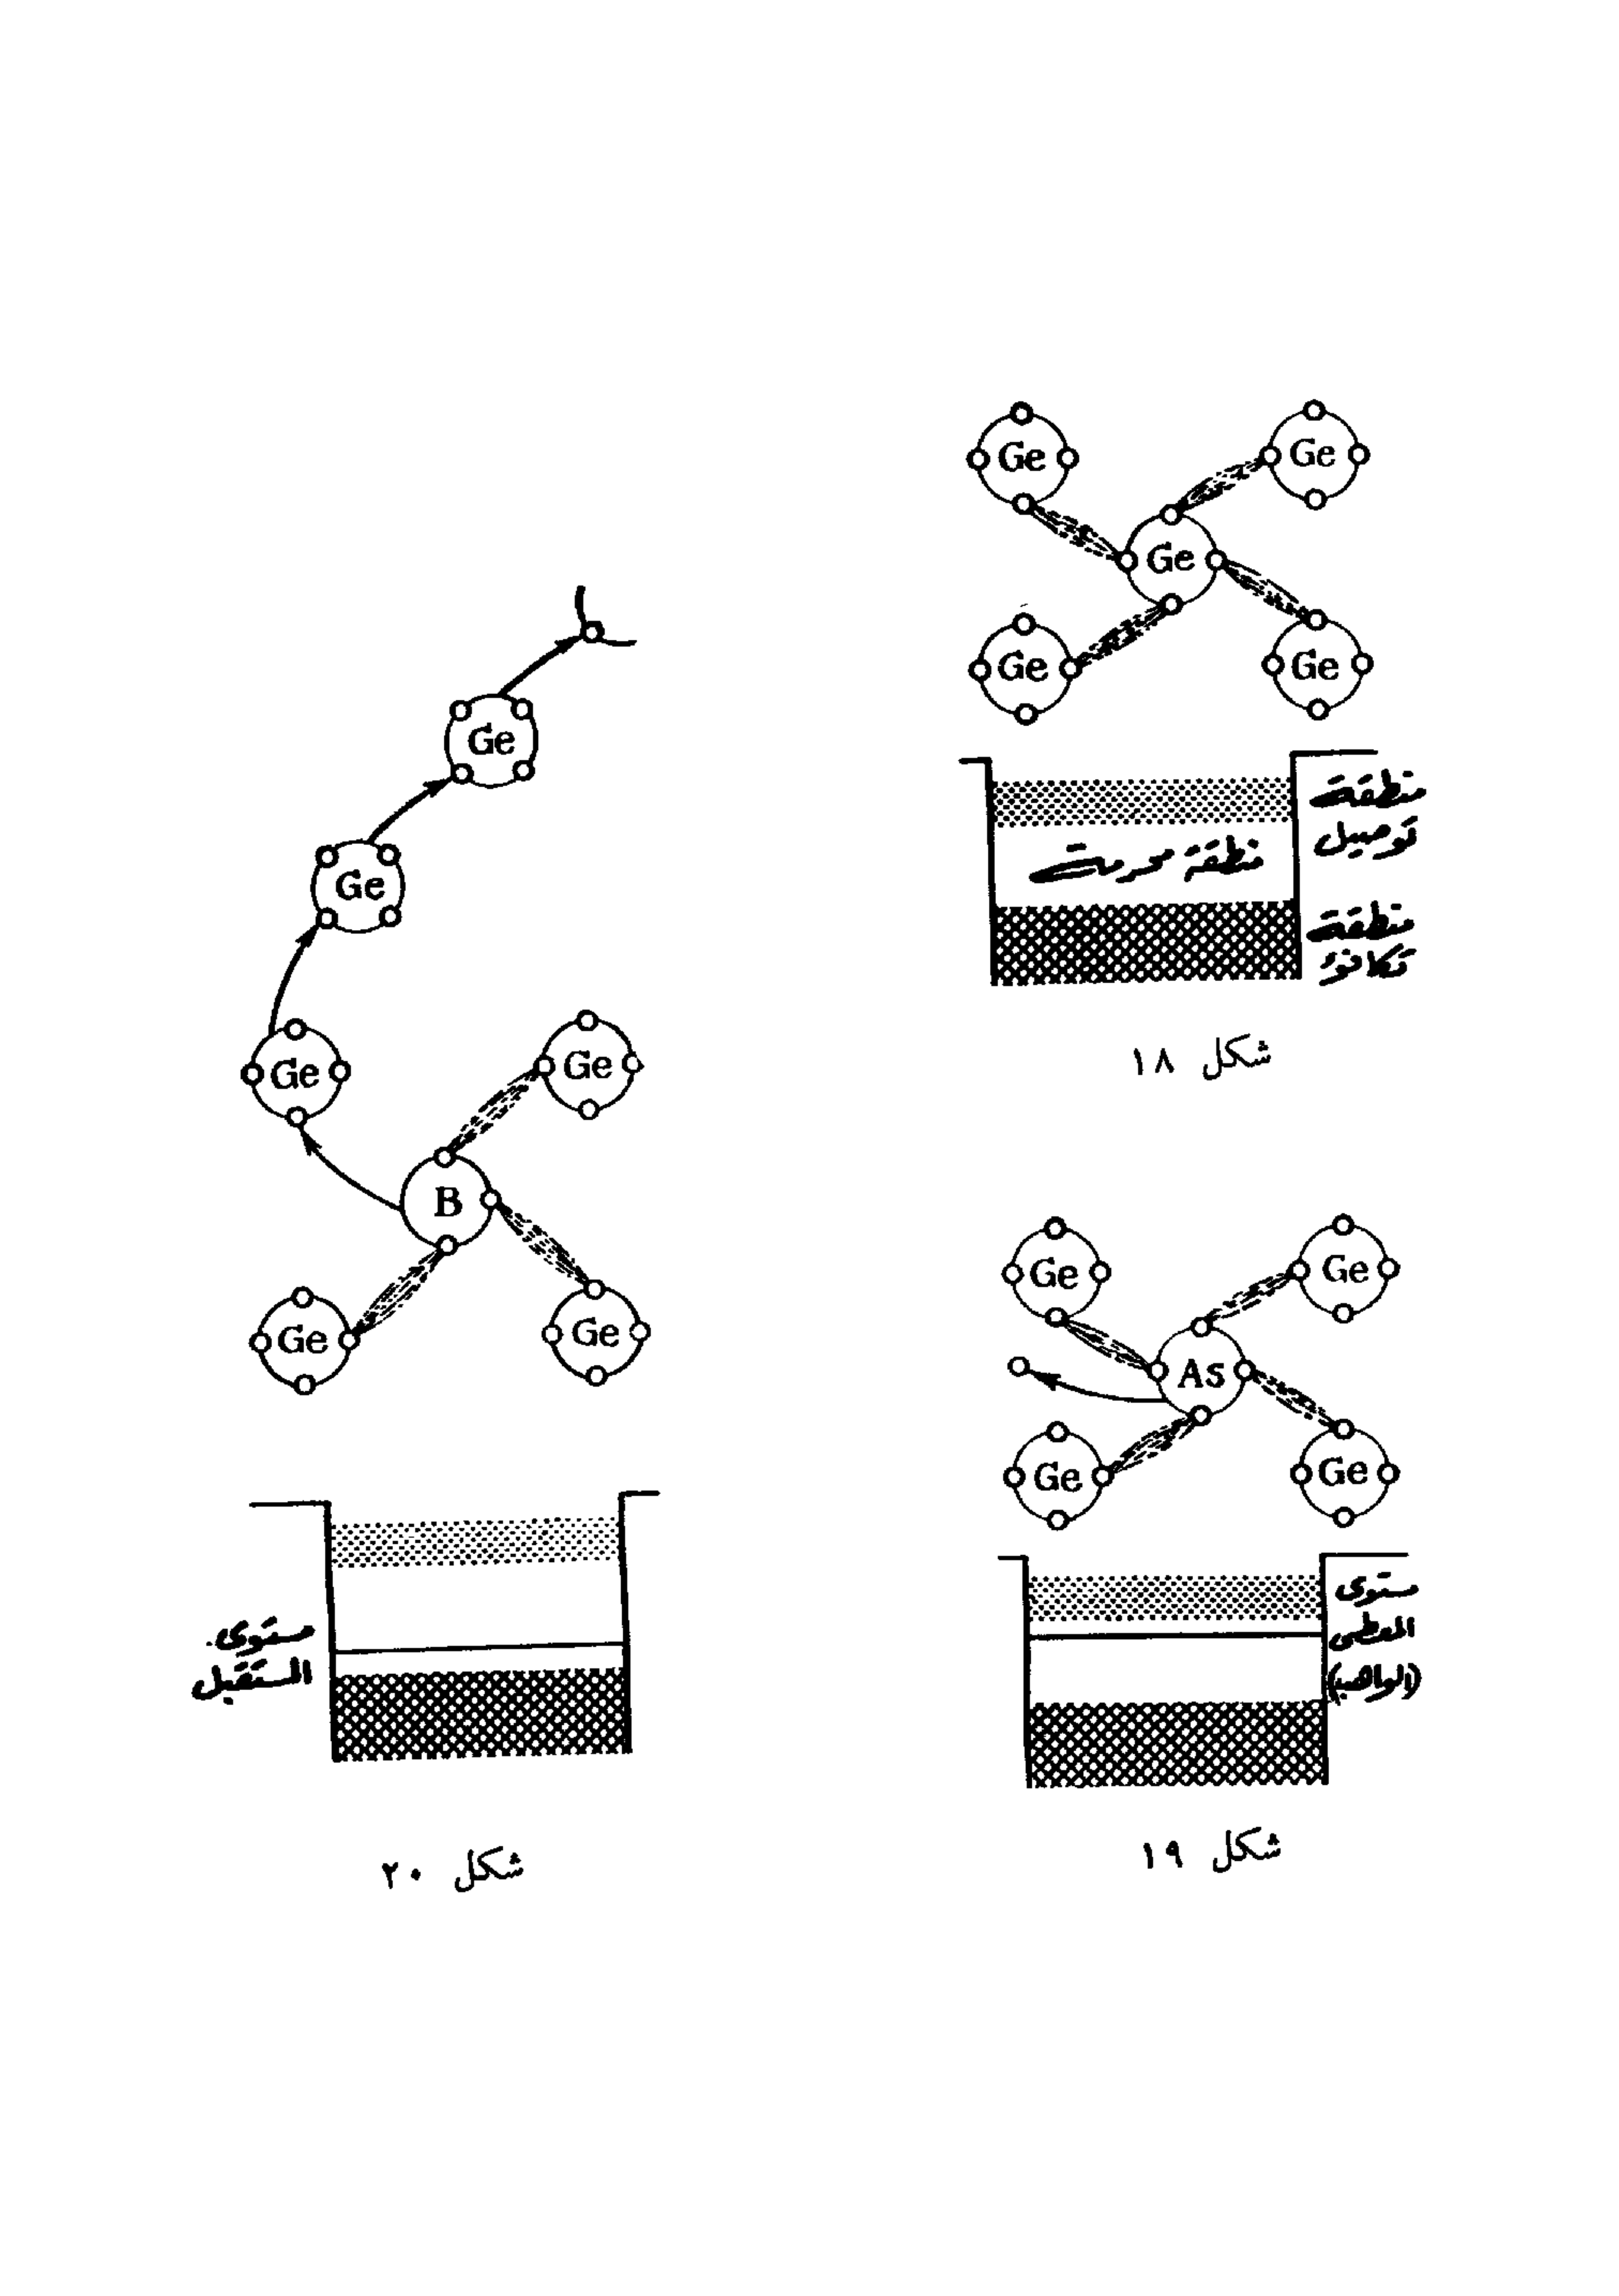 Ge
Ge
Ge
Ge
Ge
منطقة
توصيل
منطقة محرمة
منطقة
تكافؤ
شكل ١٨
Ge
Ge
As
Ge
Ge
مستوى
المعطى
(الواهب)
شكل ١٩
Ge
Ge
Ge
Ge
B
Ge
Ge
مستوى
المستقبل
شكل ٢٠